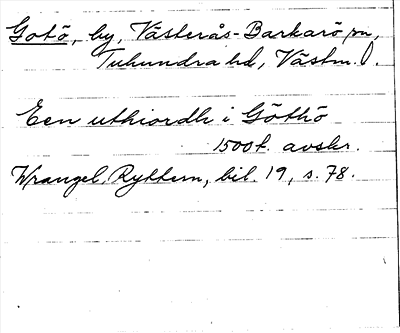 Gotö, by, Västerås-Barkarö sn,
Tuhundra hd, Västm. l.
Een uthiordh i Göthö
1500t. avskr.
Wrangel, Ryttern, bil. 19, s. 78.